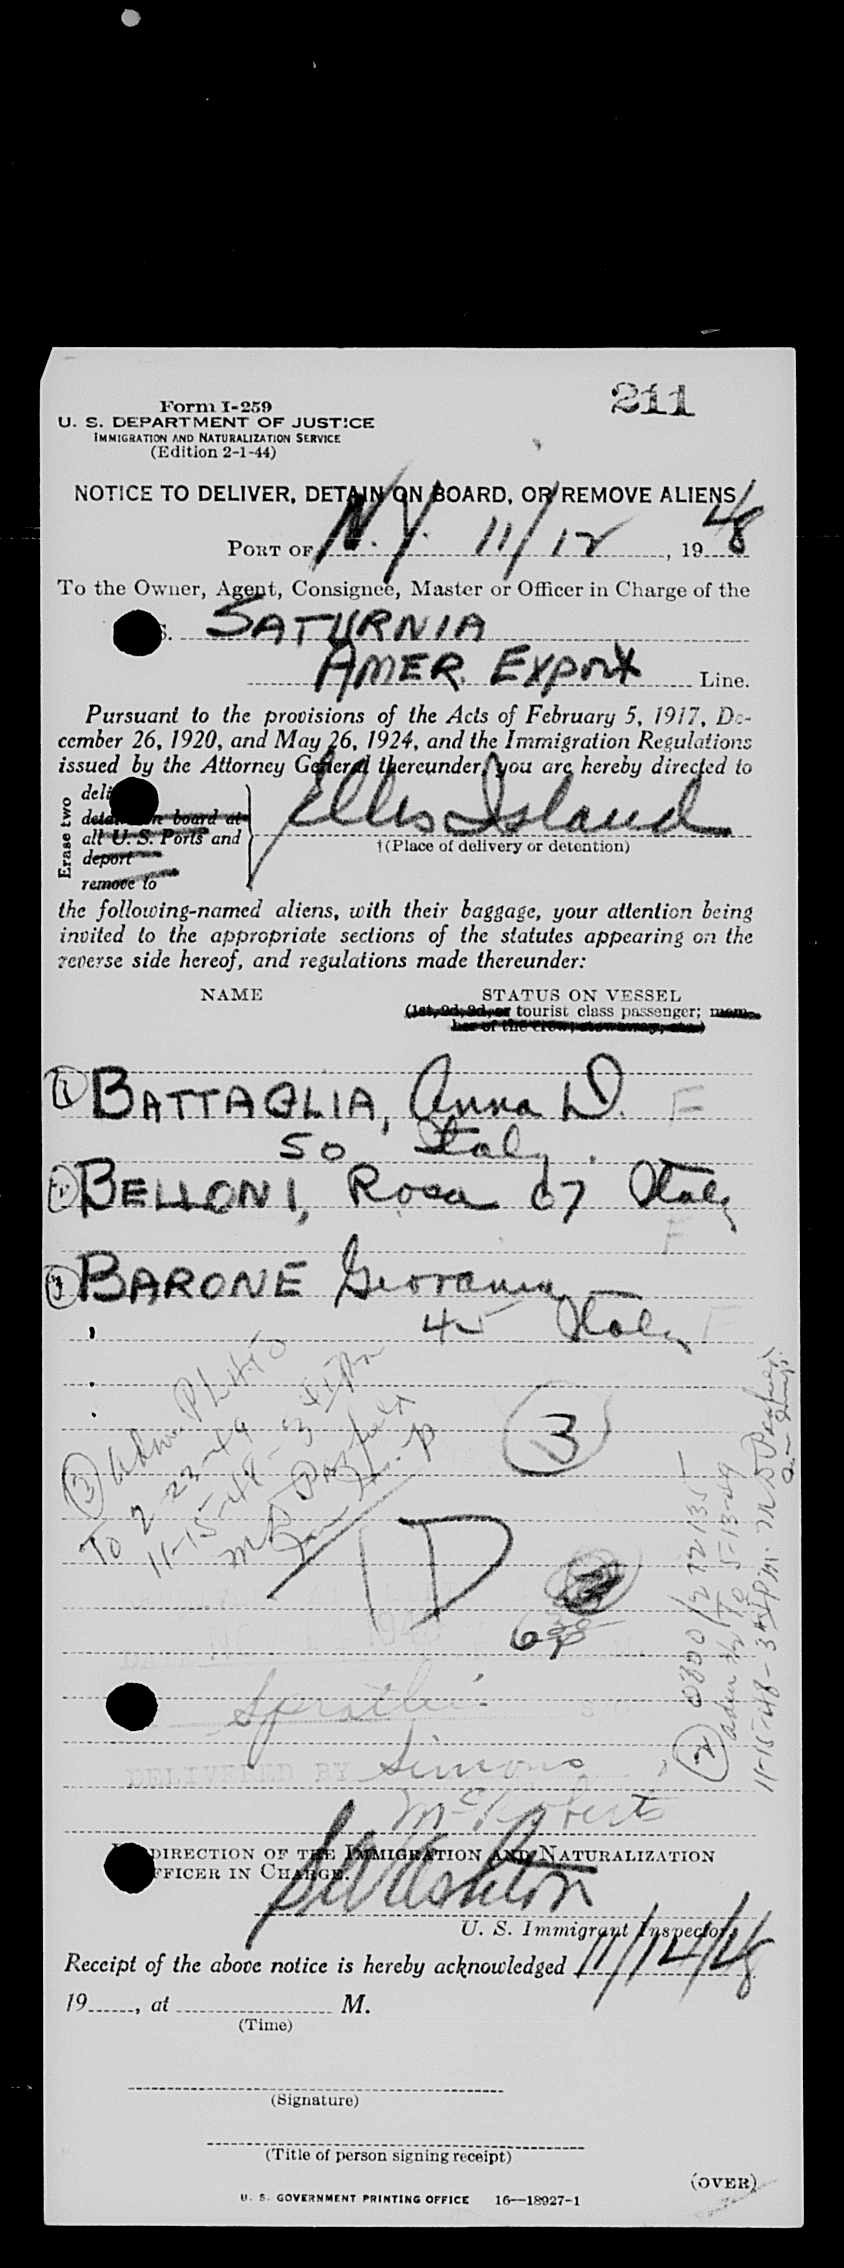 211
Form I-259
U. S. DEPARTMENT OF JUSTICE
IMMIGRATION AND NATURALIZATION SERVICE
(Edition 2-1-44)
NOTICE TO DELIVER, DETAIN ON BOARD, OR REMOVE ALIENS
PORT OF N.Y. 11/12, 1948
To the Owner, Agent, Consignee, Master or Officer in Charge of the
S. SATURNIA
AMER. Export Line.
Pursuant to the provisions of the Acts of February 5, 1917, De-
cember 26, 1920, and May 26, 1924, and the Immigration Regulations
issued by the Attorney General thereunder, you are hereby directed to
Erase two
deli
detain on board at
all U. S. Ports and
deport
remove to
Ellis Island
†(Place of delivery or detention)
the following-named aliens, with their baggage, your attention being
invited to the appropriate sections of the statutes appearing on the
reverse side hereof, and regulations made thereunder:
NAME STATUS ON VESSEL
(1st, 2d, 3d, or tourist class passenger; mem-
ber of the crew, stowaway, etc.)
1 BATTAGLIA, Anna D. F
50 Italy
2 BELLONI, Rosa 67 Italy
F
3 BARONE Giovanna
45 Italy F
3
To 2-23-49
11-15-48-
3
D
2
5-13-49
11-15-48-
DELIVERED BY Simons
McRoberts
DIRECTION OF THE IMMIGRATION AND NATURALIZATION
OFFICER IN CHARGE.
U. S. Immigrant Inspector
Receipt of the above notice is hereby acknowledged 11/14/48
19......, at M.
(Time)
(Signature)
(Title of person signing receipt)
(OVER)
U. S. GOVERNMENT PRINTING OFFICE 16—18927-1